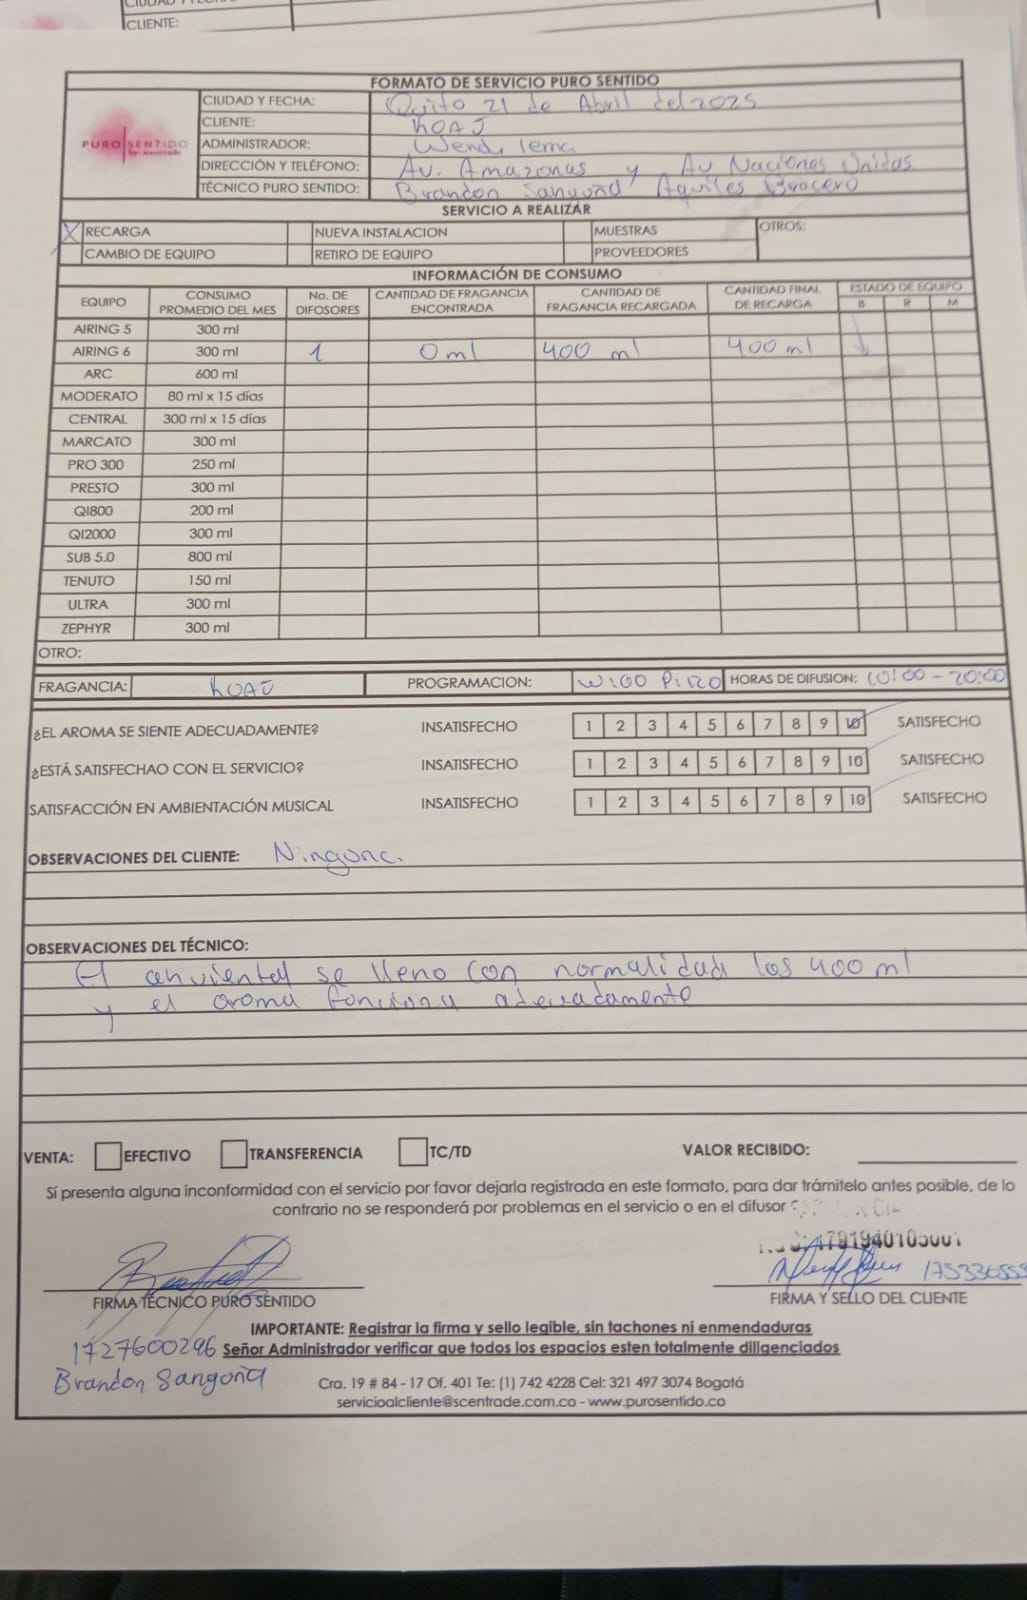 CLIENTE:
FORMATO DE SERVICIO PURO SENTIDO
PURO SENTIDO
CIUDAD Y FECHA: Quito 21 de Abril del 2025
CLIENTE: KOAJ
ADMINISTRADOR: Wendi lema
DIRECCIÓN Y TELÉFONO: Av. Amazonas y Av Naciones Unidas
TÉCNICO PURO SENTIDO: Brandon Sangoña Aquiles
SERVICIO A REALIZAR
X RECARGA NUEVA INSTALACION MUESTRAS OTROS:
CAMBIO DE EQUIPO RETIRO DE EQUIPO PROVEEDORES
INFORMACIÓN DE CONSUMO
EQUIPO CONSUMO PROMEDIO DEL MES No. DE DIFOSORES CANTIDAD DE FRAGANCIA ENCONTRADA CANTIDAD DE FRAGANCIA RECARGADA CANTIDAD FINAL DE RECARGA ESTADO DE EQUIPO
B R M
AIRING 5 300 ml
AIRING 6 300 ml 1 0 ml 400 ml 400 ml
ARC 600 ml
MODERATO 80 ml x 15 días
CENTRAL 300 ml x 15 días
MARCATO 300 ml
PRO 300 250 ml
PRESTO 300 ml
QI800 200 ml
QI2000 300 ml
SUB 5.0 800 ml
TENUTO 150 ml
ULTRA 300 ml
ZEPHYR 300 ml
OTRO:
FRAGANCIA: KOAJ PROGRAMACION: HORAS DE DIFUSION: 10:00 - 20:00
¿EL AROMA SE SIENTE ADECUADAMENTE? INSATISFECHO 1 2 3 4 5 6 7 8 9 10 SATISFECHO
¿ESTÁ SATISFECHAO CON EL SERVICIO? INSATISFECHO 1 2 3 4 5 6 7 8 9 10 SATISFECHO
SATISFACCIÓN EN AMBIENTACIÓN MUSICAL INSATISFECHO 1 2 3 4 5 6 7 8 9 10 SATISFECHO
OBSERVACIONES DEL CLIENTE: Ninguna.
OBSERVACIONES DEL TÉCNICO:
El anviental se lleno con normalidad los 400 ml
y el aroma funciona adecuadamente
VENTA: EFECTIVO TRANSFERENCIA TC/TD VALOR RECIBIDO:
Si presenta alguna inconformidad con el servicio por favor dejarla registrada en este formato, para dar trámitelo antes posible, de lo
contrario no se responderá por problemas en el servicio o en el difusor
1791940105001
FIRMA TÉCNICO PURO SENTIDO FIRMA Y SELLO DEL CLIENTE
IMPORTANTE: Registrar la firma y sello legible, sin tachones ni enmendaduras
1727600296 Señor Administrador verificar que todos los espacios esten totalmente diligenciados
Brandon Sangoña
Cra. 19 # 84 - 17 Of. 401 Te: (1) 742 4228 Cel: 321 497 3074 Bogotá
servicioalcliente@scentrade.com.co - www.purosentido.co